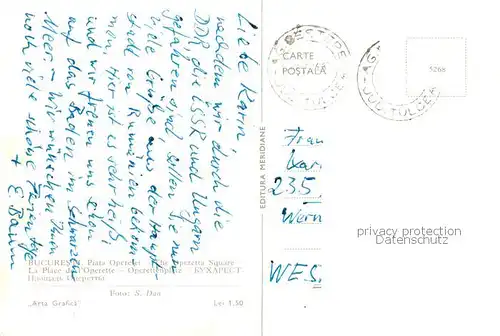 Liebe Karin,
nachdem wir durch die
DDR, die ČSSR und Ungarn
gefahren sind, sollen Sie nun
viele Grüße aus der Haupt-
stadt von Rumänien bekom-
men. Hier ist es sehr heiß,
und wir freuen uns schon
auf das Baden im Schwarzen
Meer – wir wünschen Ihnen
noch viele schöne Ferientage
+ E. Baum
BUCUREȘTI. Piața Operetei – The Operetta Square –
La Place de l'Opérette – Operettenplatz – БУХАРЕСТ-
Площадь Оперетты
Foto: S. Dan
„Arta Grafică"
Lei 1,50
EDITURA MERIDIANE
CARTE
POȘTALĂ
JUD. TULCEA
JUD. TULCEA
5268
Frau
Kar
235
Wern
WES
privacy protection
Datenschutz